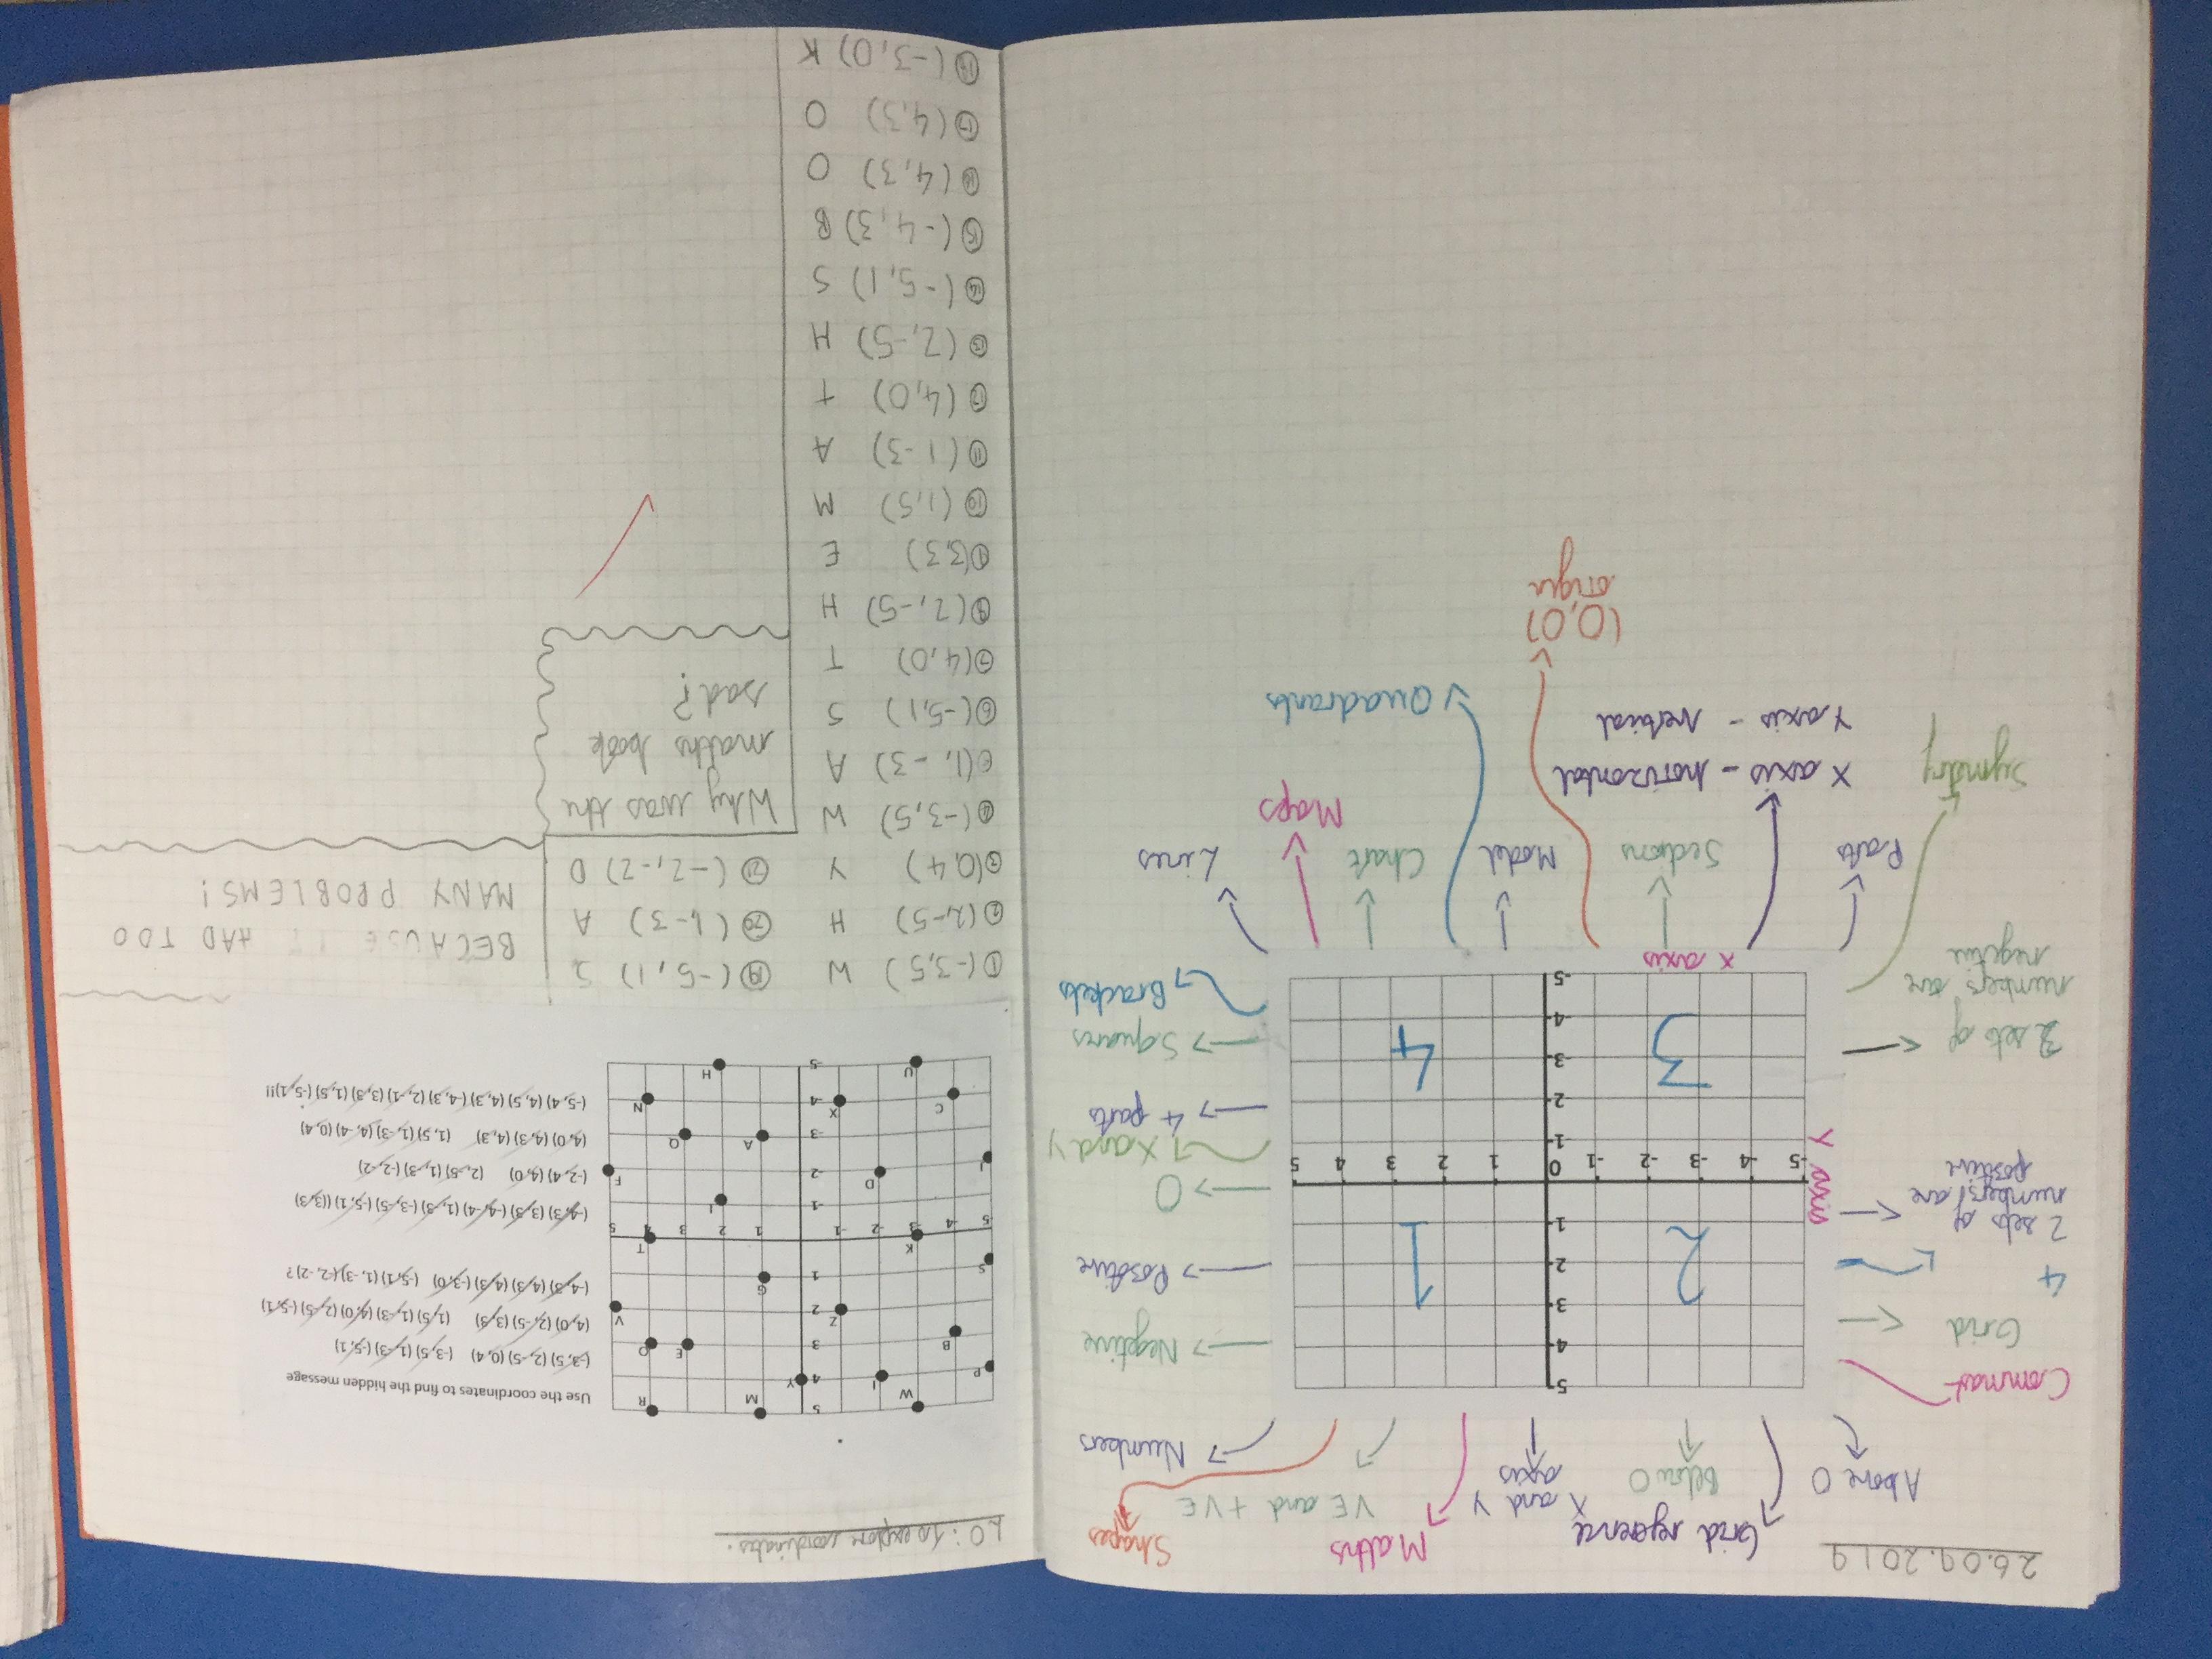 26.09.2019
Above 0
Grid reference
Below 0
X and Y
axis
Maths
VE and +VE
Shapes
Numbers
Commas
Grid
4
2 sets of
numbers are
positive
2 sets of
numbers are
negitive
Symetry
Negitive
Positive
0
X and Y
4 parts
Squares
Brackets
5
4
3
2
1
0
-1
-2
-3
-4
-5
-5 -4 -3 -2 -1 1 2 3 4 5
2 1
3 4
Y axis
X axis
Parts
Sections
Model
Chart
Maps
Lines
X axis - horizontal
Y axis - vertical
Quadrants
(0,0)
origin
LO: To explore coordinates.
Use the coordinates to find the hidden message
(-3,5) (2,-5) (0,4) (-3,5) (1,-3) (-5,1)
(4,0) (2,-5) (3,3) (1,5) (1,-3) (4,0) (2,-5) (-5,1)
(-4,3) (4,3) (4,3) (-3,0) (-5,1) (1,-3) (-2,-2)?
(4,0) (4,3) (4,3) (1,5) (1,-3) (4,-4) (0,4)
R M W P
Y I
O E B
V Z
G S
T K
J
F D
Q A
N X C
H U
① (-3,5) W
② (2,-5) H
③ (0,4) Y
④ (-3,5) W
⑤ (1,-3) A
⑥ (-5,1) S
⑦ (4,0) T
(2,-5) H
(3,3) E
⑩ (1,5) M
⑪ (1-3) A
⑫ (4,0) T
⑬ (2,-5) H
⑭ (-5,1) S
⑮ (-4,3) B
⑯ (4,3) O
⑰ (4,3) O
(-3,0) K
⑲ (-5,1) S
⑳ (1,-3) A
㉑ (-2,-2) D
Why was the
maths book
sad?
BECAUSE IT HAD TOO
MANY PROBLEMS!